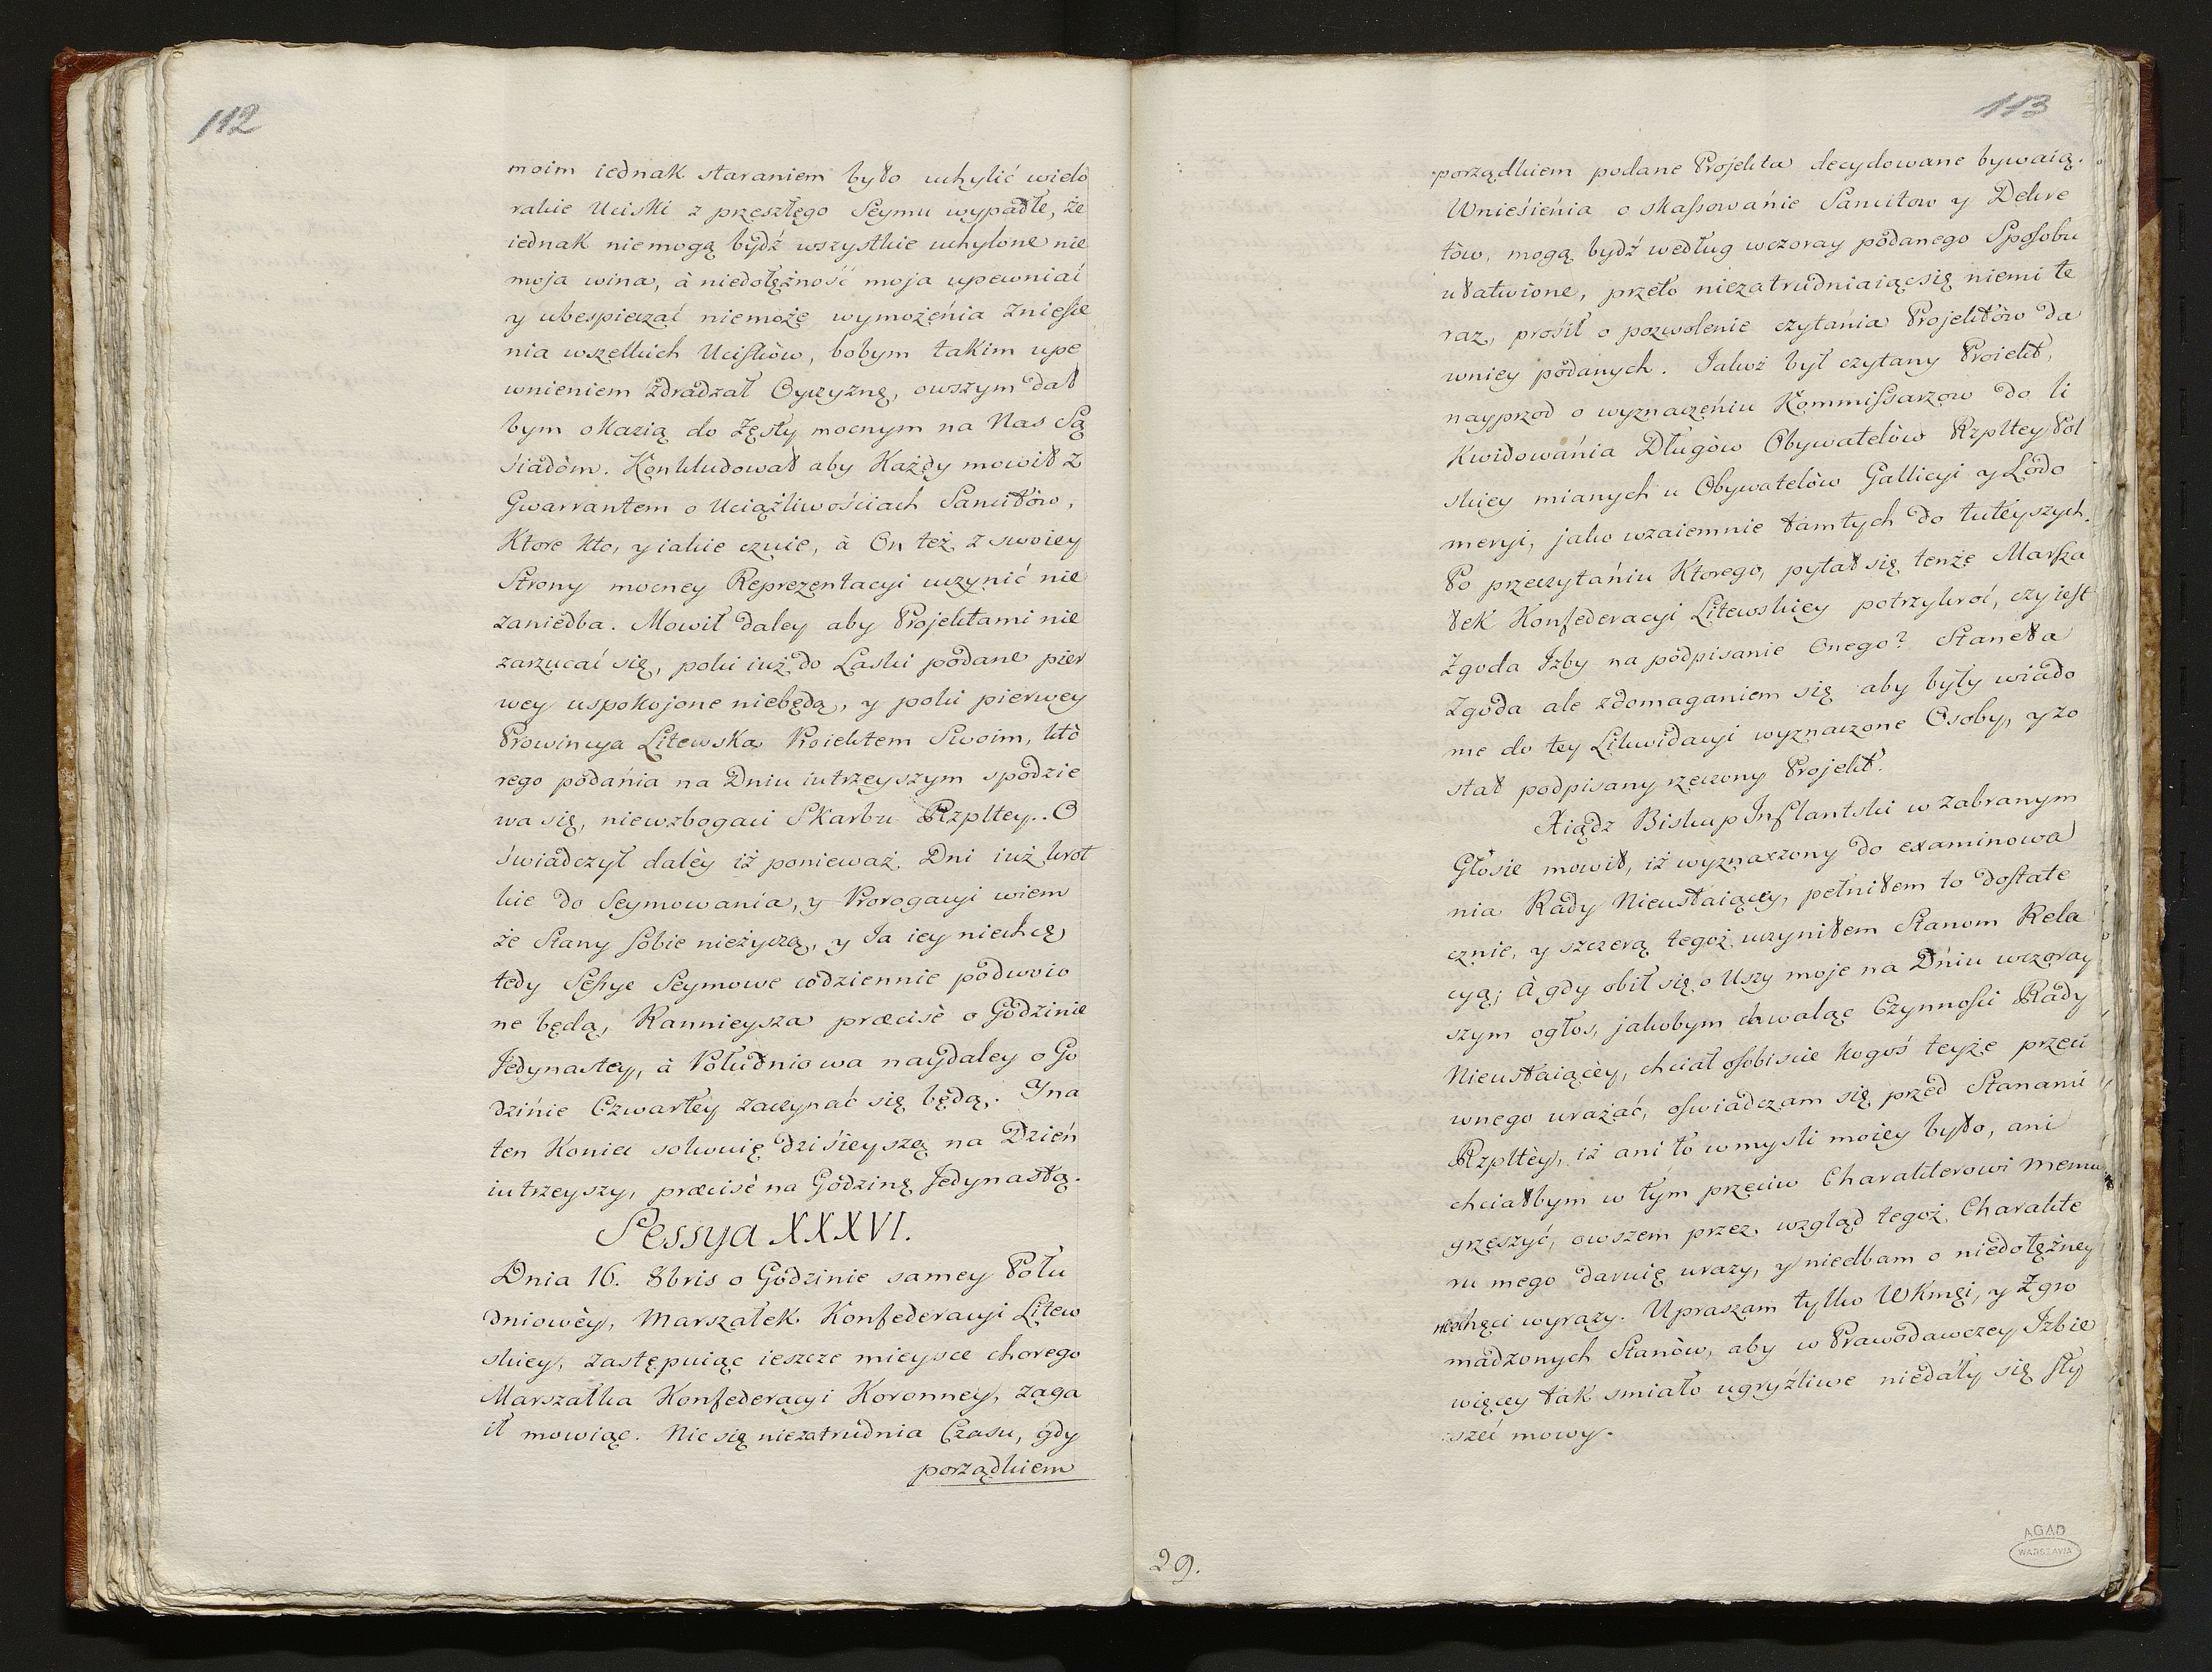 112
moim iednak staraniem było uchylić wielo
rakie Uciski z przeszłego Seymu wypadłe, że
iednak niemogą bydź wszystkie uchylone nie
moja wina, à niedołężność moja upewniać
y ubespieczać niemoże wymożenia Zniesie
nia wszelkich Ucisków, bobym takim upe
wnieniem zdradzał Oyczyznę, owszym dał
bym okazią do Zęsty mocnym na Nas Są
siadòm. Konkludował aby Każdy mowił z
Gwarrantem o Uciążliwościach Sancitów,
Ktore kto, y iakie czuie, à On też z swoiey
Strony mocney Reprezentacyi uczynić nie
zaniedba. Mowił daley aby Projektami nie
zarzucać się, poki iuż do Laski podane pier
wey uspokojone niebędą, y poki pierwey
Prowincya Litewska Proiektem Swoim, któ
rego podania na Dniu iutrzeyszym spodzie
wa się, niewzbogaci Skarbu Rzpltey. O
świadczył daléy iż ponieważ Dni iuż krot
kie do Seymowania, y Prorogacyi wiem
że Stany sobie nieżyczą, y Ja iey niechcę,
tedy Sessye Seymowe codziennie podwoio
ne będą, Rannieysza præcisè o Godzinie
Jedynastey, à Południowa naydaley o Go
dzinie Czwartey zaczynać się będą. Y na
ten Koniec solwuię dzisieyszą na Dzień
iutrzeyszy, præcisè na Godzinę Jedynastą.
Sessya XXXVI.
Dnia 16. 8bris o Godzinie samey Połu
dniowéy, Marszałek Konfederacyi Litew
skiey, zastępuiąc ieszcze mieysce chorego
Marszałka Konfederacyi Koronney, zaga
ił mowiąc. Nic się niezatrudnia Czasu, gdy
porządkiem
113
porządkiem podane Projekta decydowane bywaią.
Wniesienia o skassowanie Sancitow y Dekre
tòw, mogą bydź według wczoray podanego Sposobu
ułatwione, przeto niezatrudniaiąc się niemi te
raz, prosił o pozwolenie czytania Projektòw da
wniey podanych. Jakoż był czytany Proiekt,
nayprzod o wyznaczeniu Kommissarzow do li
kwidowania Długòw Obywatelòw Rzpltey Pol
skiey mianych u Obywatelòw Gallicyi y Lodo
meryi, jako wzaiemnie tamtych do tuteyszych.
Po przeczytaniu Ktorego, pytał się tenże Marsza
łek Konfederacyi Litewskiey potrzykroć, czy iest
Zgoda Izby na podpisanie Onego? Staneła
Zgoda ale zdomaganiem się aby były wiado
me do tey Likwidacyi wyznaczone Osoby, y zo
stał podpisany rzeczony Projekt.
Xiądz Biskup Inflantski w zabranym
Głosie mowił, iż wyznaczony do examinowa
nia Rady Nieustaiącey, pełniłem to dostate
cznie, y szczerą tegoż uczyniłem Stanom Rela
cyą; à gdy obił się o Uszy moje na Dniu wczoray
szym ogłos, jakobym chwaląc Czynności Rady
Nieustaiącéy, chciał osobiscie kogoś teyże przeci
wnego urażać, oswiadczam się przed Stanami
Rzpltéy, iż ani to w mysli moiey było, ani
chciałbym w tym przeciw Charakterowi memu
grzeszyć, owszem przez wzgląd tegoż Charakte
ru mego daruię urazy, y niedbam o niedołężney
niechęci wyrazy. Upraszam tylko WKmći, y Zgro
madzonych Stanòw, aby w Prawodawczey Izbie
więcey tak smiało ugryźliwe niedały się sły
szeć mowy.
29.
AGAD
WARSZAWA